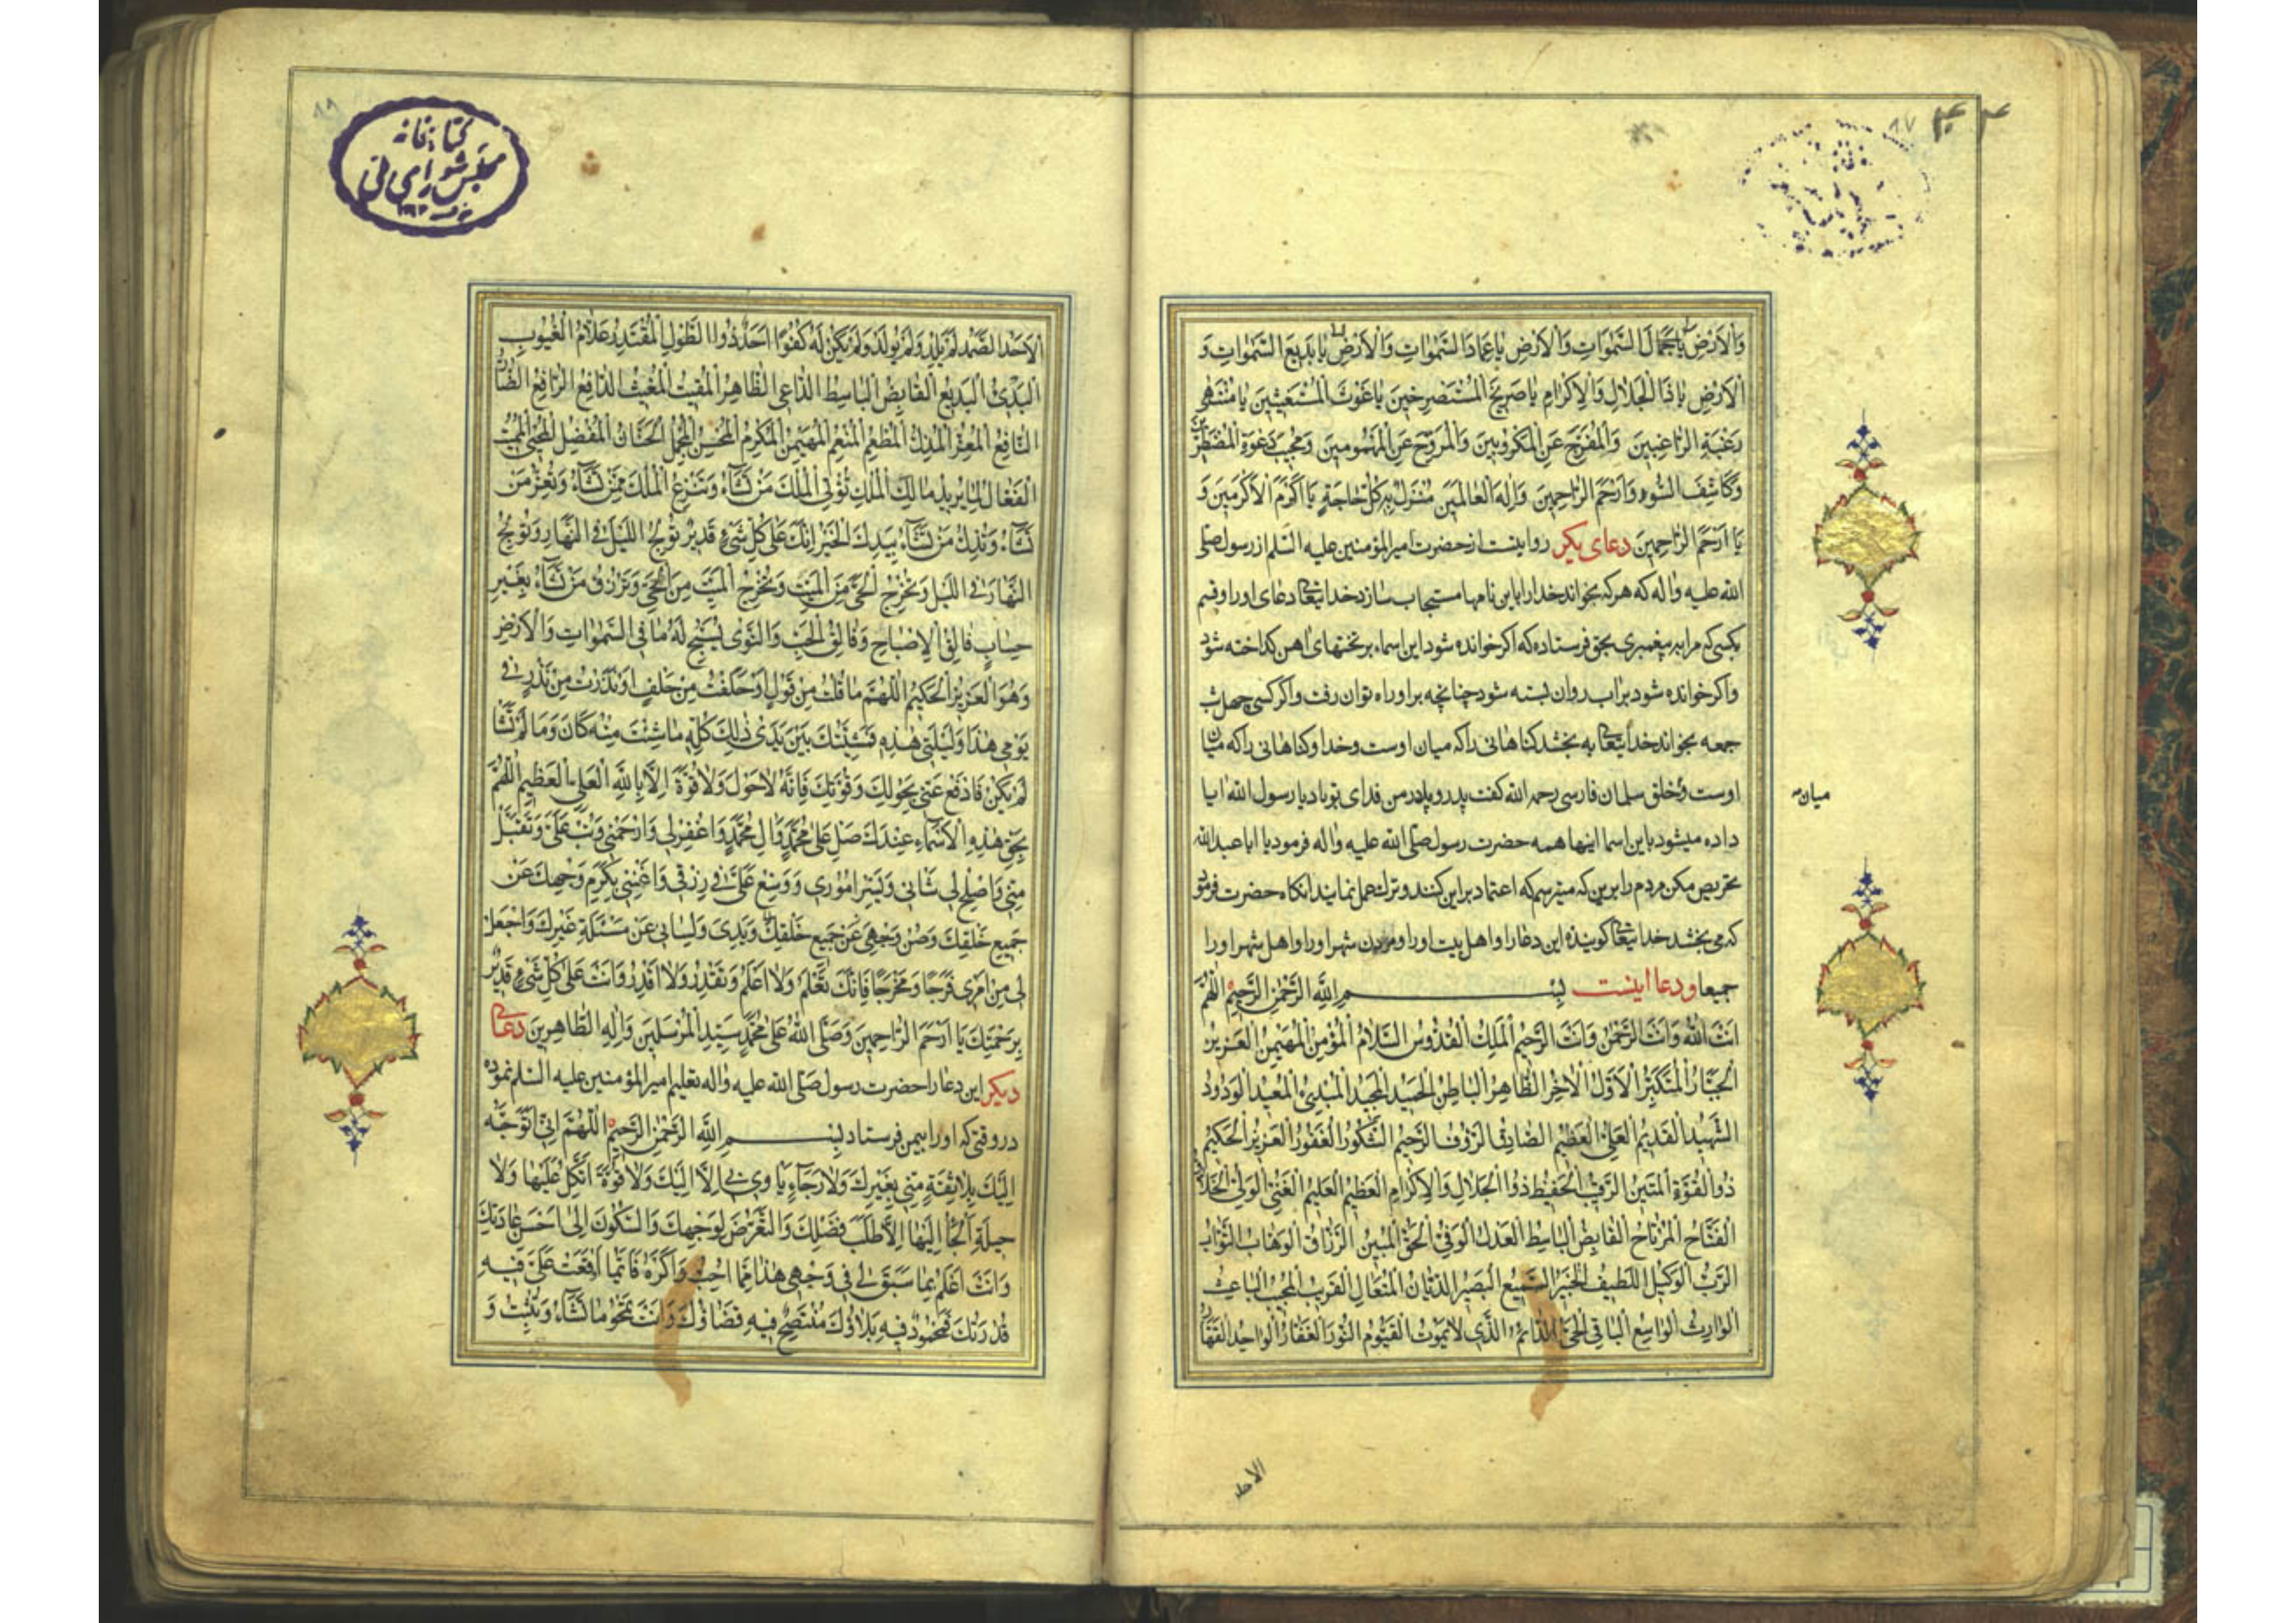 وَالْاَرْضِ يا جَمالَ السَّمٰواتِ وَالْاَرْضِ يا عِمادَ السَّمٰواتِ وَالْاَرْضِ يا بَديعَ السَّمٰواتِ وَ
الْاَرْضِ يا ذَا الْجَلالِ وَالْاِكْرامِ يا صَريخَ الْمُسْتَصْرِخينَ يا غَوْثَ الْمُسْتَغيثينَ يا مُنْتَهى
رَغْبَةِ الرّاغِبينَ وَالْمُفَرِّجَ عَنِ الْمَكْروبينَ وَالْمُرَوِّحَ عَنِ الْمَهْمومينَ وَمُجيبَ دَعْوَةِ الْمُضْطَرّينَ
وَكاشِفَ السُّوءِ وَاَرْحَمَ الرّاحِمينَ وَاِلٰهَ الْعالَمينَ مَنْزُولٌ بِهِ كُلُّ حاجَةٍ يا اَكْرَمَ الْاَكْرَمينَ وَ
يا اَرْحَمَ الرّاحِمينَ دعاى ديكر روايتست از حضرت امير المؤمنين عليه السلم از رسول صلى
الله عليه واله كه هركه بخواند خدا را باين نامها مستجاب سازد خدايتعا دعاى او را وقسم
بكسى كه مرا به پيغمبرى بحق فرستاده كه اكر خوانده شود اين اسماء بر تختهاى اهن كداخته شود
واكر خوانده شود بر اب روان بسته شود چنانچه بر او راه توان رفت واكر كسى چهل شب
جمعه بخواند خدايتعا به بخشد كناهانى را كه ميان اوست وخدا وكناهانى را كه ميان
اوست وخلق سلمان فارسى رحمه الله كفت پدر ومادر من فداى تو باد يا رسول الله ايا
ميان
داده ميشود باين اسما اينها همه حضرت رسول صلى الله عليه واله فرمود يا ابا عبدالله
تحريص مكن مردم را برين كه ميترسم كه اعتماد براين كنند وترك عمل نمايند انكاه حضرت فرمود
كه مى بخشد خدايتعا كوينده اين دعا را واهل بيت او را ومردن شهر او را واهل شهر او را
جميعا ودعا اينست بِسْمِ اللهِ الرَّحْمٰنِ الرَّحيمِ اَللّٰهُمَّ
اَنْتَ اللهُ وَاَنْتَ الرَّحْمٰنُ وَاَنْتَ الرَّحيمُ الْمَلِكُ الْقُدُّوسُ السَّلامُ الْمُؤْمِنُ الْمُهَيْمِنُ الْعَزيزُ
الْجَبّارُ الْمُتَكَبِّرُ الْاَوَّلُ الْاٰخِرُ الظّاهِرُ الْباطِنُ الْحَميدُ الْمَجيدُ الْمُبْدِئُ الْمُعيدُ الْوَدُودُ
الشَّهيدُ الْقَديمُ الْعَلِيُّ الْعَظيمُ الصّادِقُ الرَّؤُفُ الرَّحيمُ الشَّكُورُ الْغَفُورُ الْعَزيزُ الْحَكيمُ
ذُو الْقُوَّةِ الْمَتينُ الرَّقيبُ الْحَفيظُ ذُو الْجَلالِ وَالْاِكْرامِ الْعَظيمُ الْعَليمُ الْغَنِيُّ الْوَلِيُّ
الْفَتّاحُ الْمُرْتاحُ الْقابِضُ الْباسِطُ الْعَدْلُ الْوَفِيُّ الْحَقُّ الْمُبينُ الرَّزّاقُ الْوَهّابُ التَّوّابُ
الرَّبُّ الْوَكيلُ اللَّطيفُ الْخَبيرُ السَّميعُ الْبَصيرُ الدَّيّانُ الْمُتَعالِ الْقَريبُ الْمُجيبُ الْباعِثُ
الْوارِثُ الْواسِعُ الْباقِي الْحَيُّ الدّائِمُ الَّذي لا يَمُوتُ الْقَيُّومُ النُّورُ الْغَفّارُ الْواحِدُ الْقَهّارُ
الاحد
كتابخانه
مجلس شوراى ملى
الْاَحَدُ الصَّمَدُ لَمْ يَلِدْ وَلَمْ يُولَدْ وَلَمْ يَكُنْ لَهُ كُفُوًا اَحَدٌ ذُو الطَّوْلِ الْمُقْتَدِرُ عَلّامُ الْغُيُوبِ
الْبَدِئُ الْبَديعُ الْقابِضُ الْباسِطُ الدّاعِى الظّاهِرُ الْمُقيتُ الْمُغيثُ الدّافِعُ الرّافِعُ الضّارُّ
النّافِعُ الْمُعِزُّ الْمُذِلُّ الْمُطْعِمُ الْمُنْعِمُ الْمُهَيْمِنُ الْمُكْرِمُ الْمُحْسِنُ الْمُجْمِلُ الْحَنّانُ الْمُفْضِلُ الْمُحْيِى الْمُميتُ
الْفَعّالُ لِما يُريدُ مالِكَ الْمُلْكِ تُؤْتِى الْمُلْكَ مَنْ تَشاءُ وَتَنْزِعُ الْمُلْكَ مِمَّنْ تَشاءُ وَتُعِزُّ مَنْ
تَشاءُ وَتُذِلُّ مَنْ تَشاءُ بِيَدِكَ الْخَيْرُ اِنَّكَ عَلى كُلِّ شَيْءٍ قَديرٌ تُولِجُ اللَّيْلَ فِى النَّهارِ وَتُولِجُ
النَّهارَ فِى اللَّيْلِ وَتُخْرِجُ الْحَيَّ مِنَ الْمَيِّتِ وَتُخْرِجُ الْمَيِّتَ مِنَ الْحَيِّ وَتَرْزُقُ مَنْ تَشاءُ بِغَيْرِ
حِسابٍ فالِقُ الْاِصْباحِ وَفالِقُ الْحَبِّ وَالنَّوى يُسَبِّحُ لَهُ ما فِى السَّمٰواتِ وَالْاَرْضِ
وَهُوَ الْعَزيزُ الْحَكيمُ اَللّٰهُمَّ ما قُلْتُ مِنْ قَوْلٍ اَوْ حَلَفْتُ مِنْ حَلْفٍ اَوْ نَذَرْتُ مِنْ نَذْرٍ فى
يَوْمى هٰذا وَلَيْلَتى هٰذِهِ فَمَشِيَّتُكَ بَيْنَ يَدَىْ ذٰلِكَ كُلِّهِ ما شِئْتَ مِنْهُ كانَ وَما لَمْ تَشَأْ
لَمْ يَكُنْ فَادْفَعْ عَنّى بِحَوْلِكَ وَقُوَّتِكَ فَاِنَّهُ لا حَوْلَ وَلا قُوَّةَ اِلّا بِاللهِ الْعَلِىِّ الْعَظيمِ اَللّٰهُمَّ
بِحَقِّ هٰذِهِ الْاَسْماءِ عِنْدَكَ صَلِّ عَلى مُحَمَّدٍ وَآلِ مُحَمَّدٍ وَاغْفِرْ لى وَارْحَمْنى وَتُبْ عَلَىَّ وَتَقَبَّلْ
مِنّى وَاَصْلِحْ لى شَانى وَيَسِّرْ اُمُورى وَوَسِّعْ عَلَىَّ فى رِزْقى وَاَغْنِنى بِكَرَمِ وَجْهِكَ عَنْ
جَميعِ خَلْقِكَ وَصُنْ وَجْهى عَنْ جَميعِ خَلْقِكَ وَيَدى وَلِسانى عَنْ مَسْئَلَةِ غَيْرِكَ وَاجْعَلْ
لى مِنْ اَمْرى فَرَجًا وَمَخْرَجًا فَاِنَّكَ تَعْلَمُ وَلا اَعْلَمُ وَتَقْدِرُ وَلا اَقْدِرُ وَاَنْتَ عَلى كُلِّ شَيْءٍ قَديرٌ
بِرَحْمَتِكَ يا اَرْحَمَ الرّاحِمينَ وَصَلَّى اللهُ عَلى مُحَمَّدٍ سَيِّدِ الْمُرْسَلينَ وَآلِهِ الطّاهِرينَ دعاى
ديكر اين دعا را حضرت رسول صلى الله عليه واله تعليم امير المؤمنين عليه السلم نموده
در وقتى كه او را بيمن فرستاد بِسْمِ اللهِ الرَّحْمٰنِ الرَّحيمِ اَللّٰهُمَّ اِنّى اَتَوَجَّهُ
اِلَيْكَ بِلا ثِقَةٍ مِنّى بِغَيْرِكَ وَلا رَجاءٍ يَاْوى بى اِلّا اِلَيْكَ وَلا قُوَّةٍ اَتَّكِلُ عَلَيْها وَلا
حيلَةٍ اَلْجَأُ اِلَيْها اِلّا طَلَبَ فَضْلِكَ وَالتَّعَرُّضَ لِوَجْهِكَ وَالسُّكُونَ اِلى اَحْسَنِ عادَتِكَ
وَاَنْتَ اَعْلَمُ بِما سَبَقَ لى فى وَجْهى هٰذا مِمّا اُحِبُّ وَاَكْرَهُ فَاَيَّما اَوْقَعْتَ عَلَىَّ فيهِ
قُدْرَتَكَ فَمَحْمُودٌ فيهِ بَلاؤُكَ مُتَّضِحٌ فيهِ قَضاؤُكَ وَاَنْتَ تَمْحُو ما تَشاءُ وَتُثْبِتُ وَ